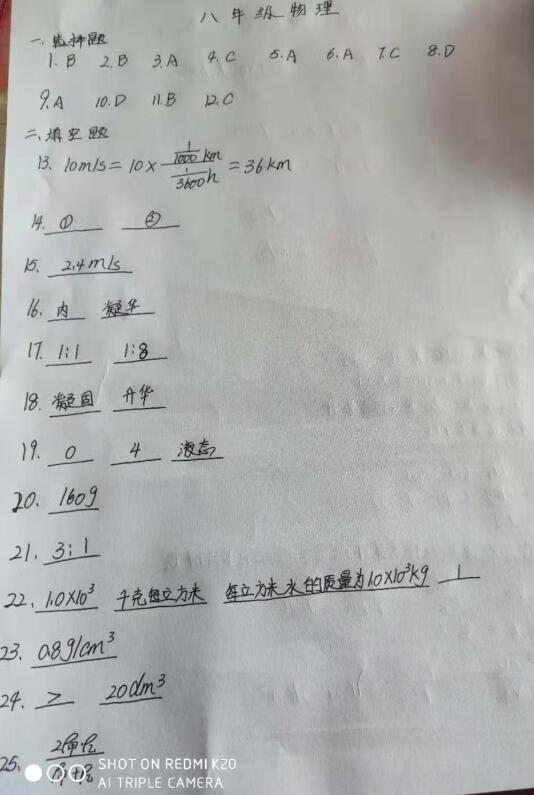 八年级物理
一、选择题
1. B 2. B 3. A 4. C 5. A 6. A 7. C 8. D
9. A 10. D 11. B 12. C
二、填空题
13. 10m/s = 10 × \frac{\frac{1}{1000}km}{\frac{1}{3600}h} = 36km
14. ① ②
15. 2.4m/s
16. 内 凝华
17. 1:1 1:8
18. 凝固 升华
19. 0 4 液态
20. 160g
21. 3:1
22. 1.0×10³ 千克每立方米 每立方米水的质量为1.0×10³kg 1
23. 0.8g/cm³
24. > 20dm³
25.
SHOT ON REDMI K20
AI TRIPLE CAMERA